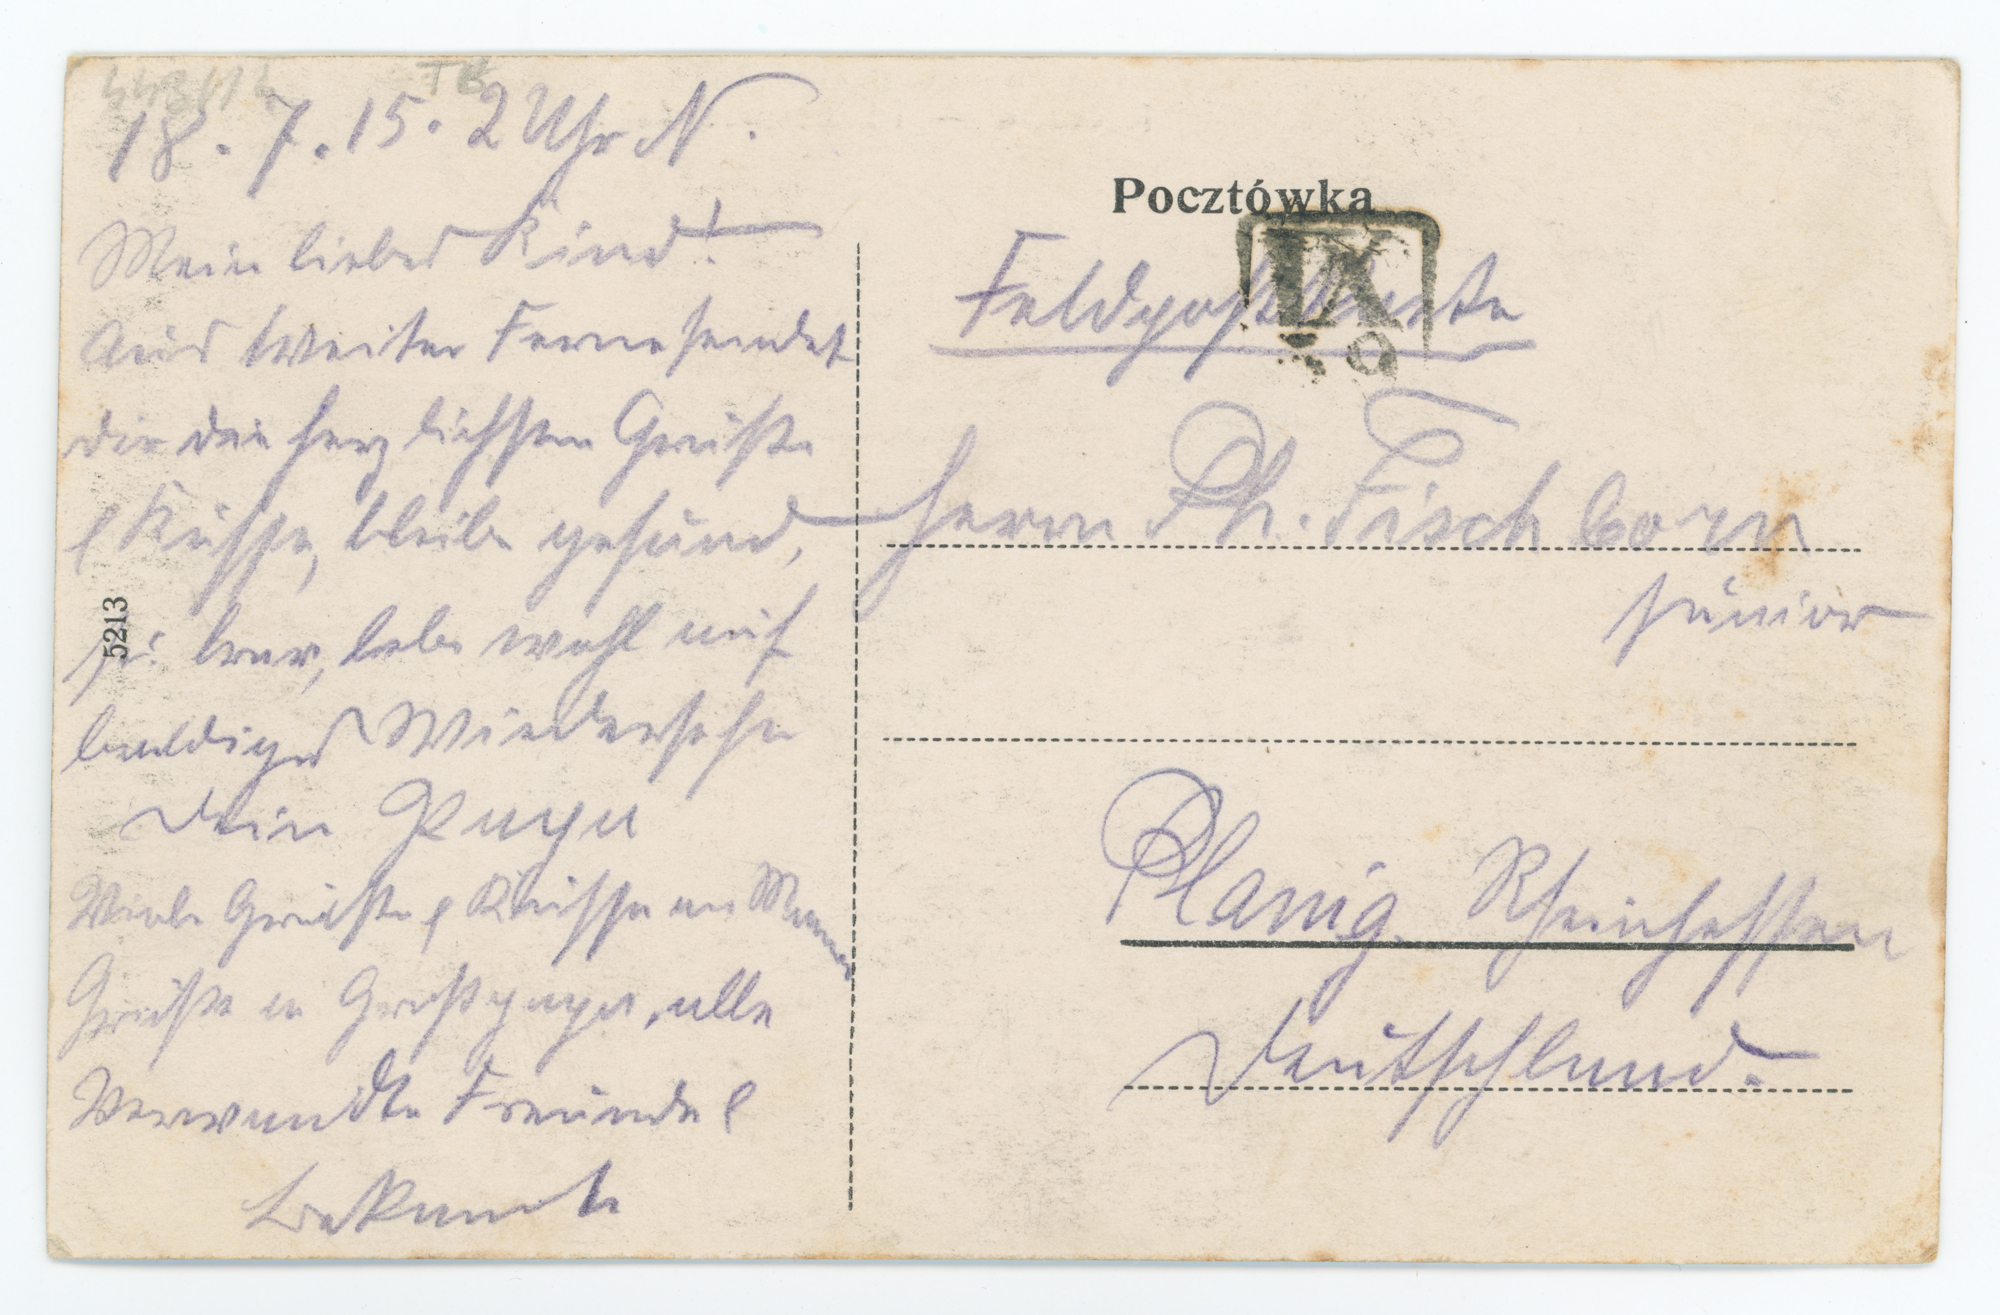 443/16 TB
18. 7. 15. 2 Uhr N.
Mein liebes Kind!
Aus weiter Ferne sendet
dir die herzlichsten Grüße
& Küsse, bleibe gesund,
sei brav, lebe wohl auf
baldiges Wiedersehn
Dein Papa
Viele Grüße & Küsse an Mama
Grüße an Großpapa, alle
Verwandte Freunde &
Bekannte
5213
Pocztówka
Feldpostkarte
IX
Herrn Ph. Fischborn
junior
Planig. Rheinhessen
Deutschland.